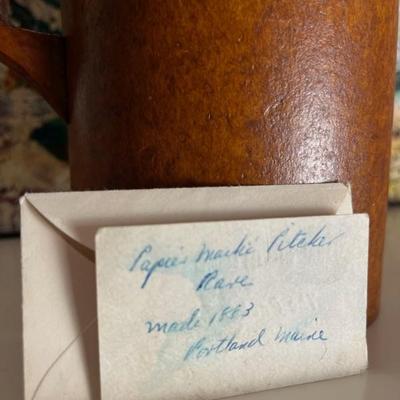 Papier Maché Pitcher
Rare
made 1883
Portland Maine